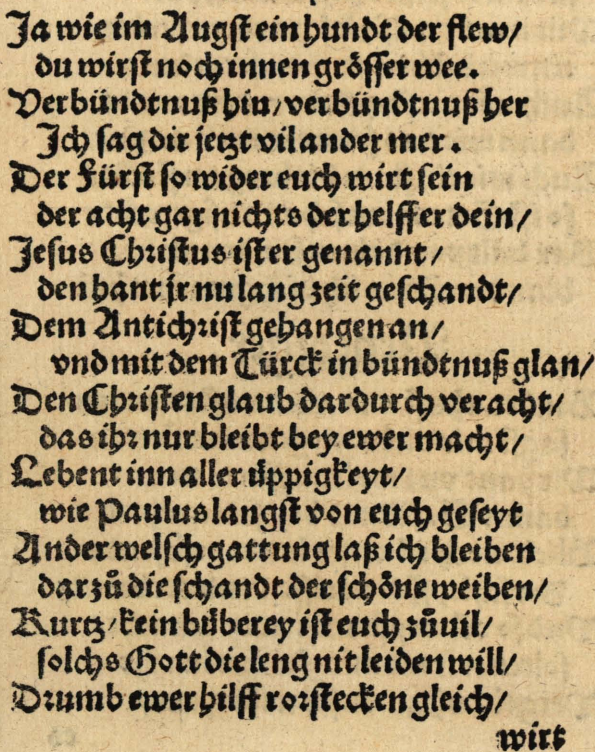 Ja wie im Augst ein hundt der flew/
du wirst noch innen grösser wee.
Verbündtnuß hin/verbündtnuß her
Ich sag dir jetzt vil ander mer.
Der Fürst so wider euch wirt sein
der acht gar nichts der helffer dein/
Jesus Christus ist er genannt/
den hant jr nu lang zeit geschandt/
Dem Antichrist gehangen an/
vnd mit dem Türck in bündtnuß glan/
Den Christen glaub dardurch veracht/
das ihr nur bleibt bey ewer macht/
Lebent inn aller üppigkeyt/
wie Paulus langst von euch geseyt
Ander welsch gattung laß ich bleiben
darzů die schandt der schöne weiben/
Kurtz/kein büberey ist euch zůuil/
solchs Gott die leng nit leiden will/
Drumb ewer hilff rorstecken gleich/
wirt